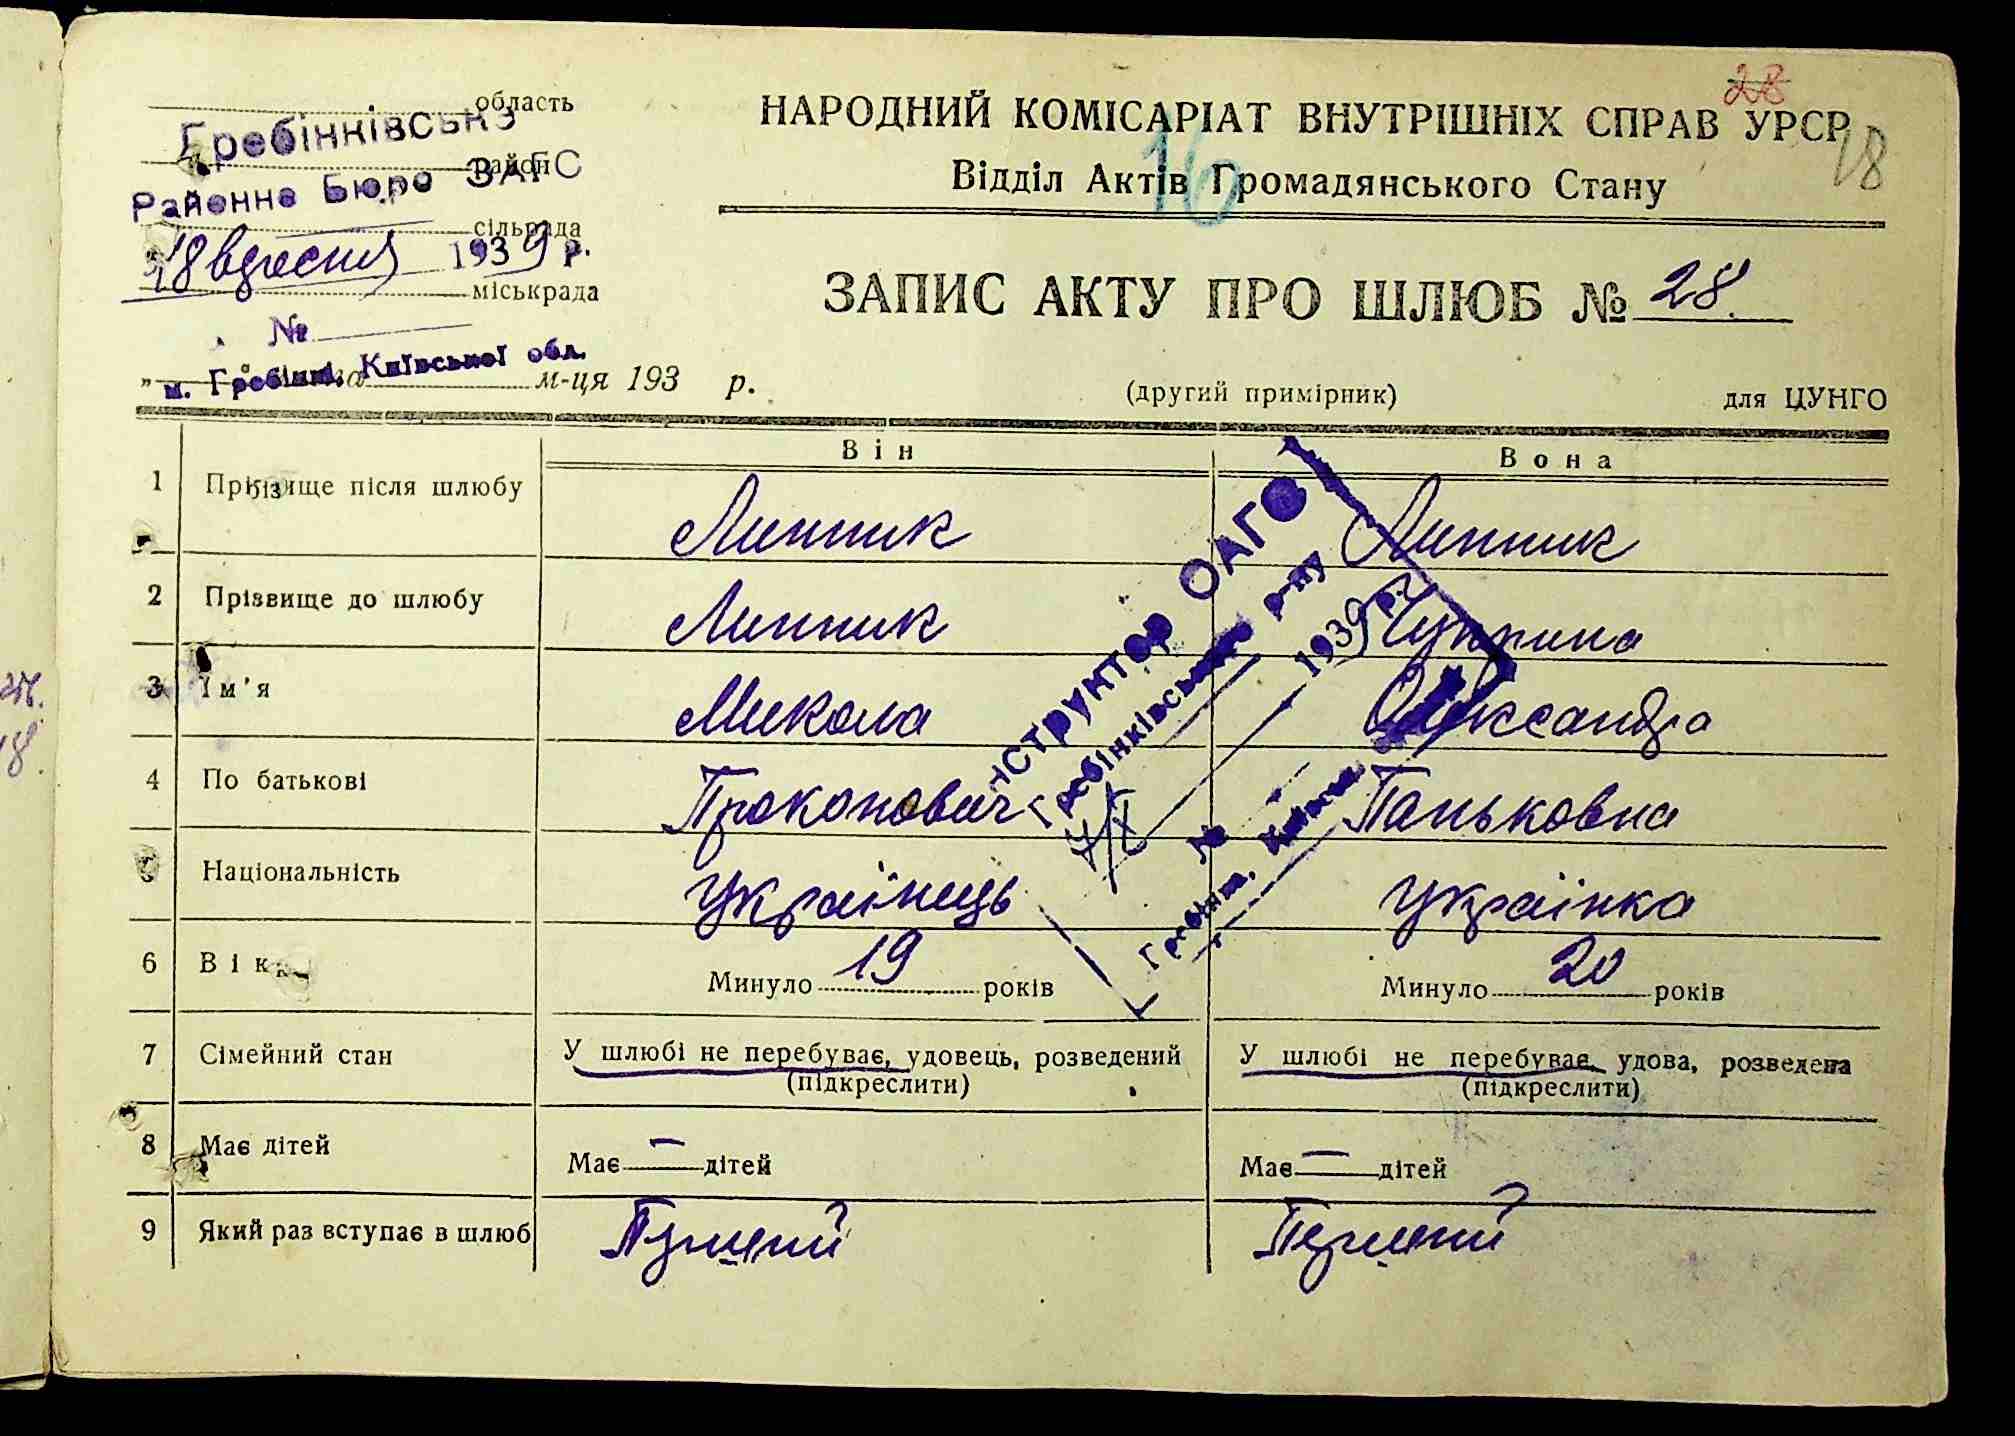 28
область
НАРОДНИЙ КОМІСАРІАТ ВНУТРІШНІХ СПРАВ УРСР
Гребінківське
район
16
18
Районне Бюро ЗАГС
Відділ Актів Громадянського Стану
сільрада
18 вересня 1939 р.
міськрада
ЗАПИС АКТУ ПРО ШЛЮБ № 28.
№
м. Гребінкі, Київської обл.
м-ця 193 р.
(другий примірник)
для ЦУНГО
Він
Вона
1 Прізвище після шлюбу Линник Линник
2 Прізвище до шлюбу Линник Чуприна
3 Ім'я Микола Олександра
4 По батькові Прокопович Паньковна
Національність Українець Українка
6 Вік Минуло 19 років Минуло 20 років
7 Сімейний стан У шлюбі не перебуває, удовець, розведений У шлюбі не перебуває, удова, розведена
(підкреслити) (підкреслити)
8 Має дітей Має — дітей Має — дітей
9 Який раз вступає в шлюб Перший Перший
Інструктор ОАГС
Гребінківського р-ну
1939 р.
№